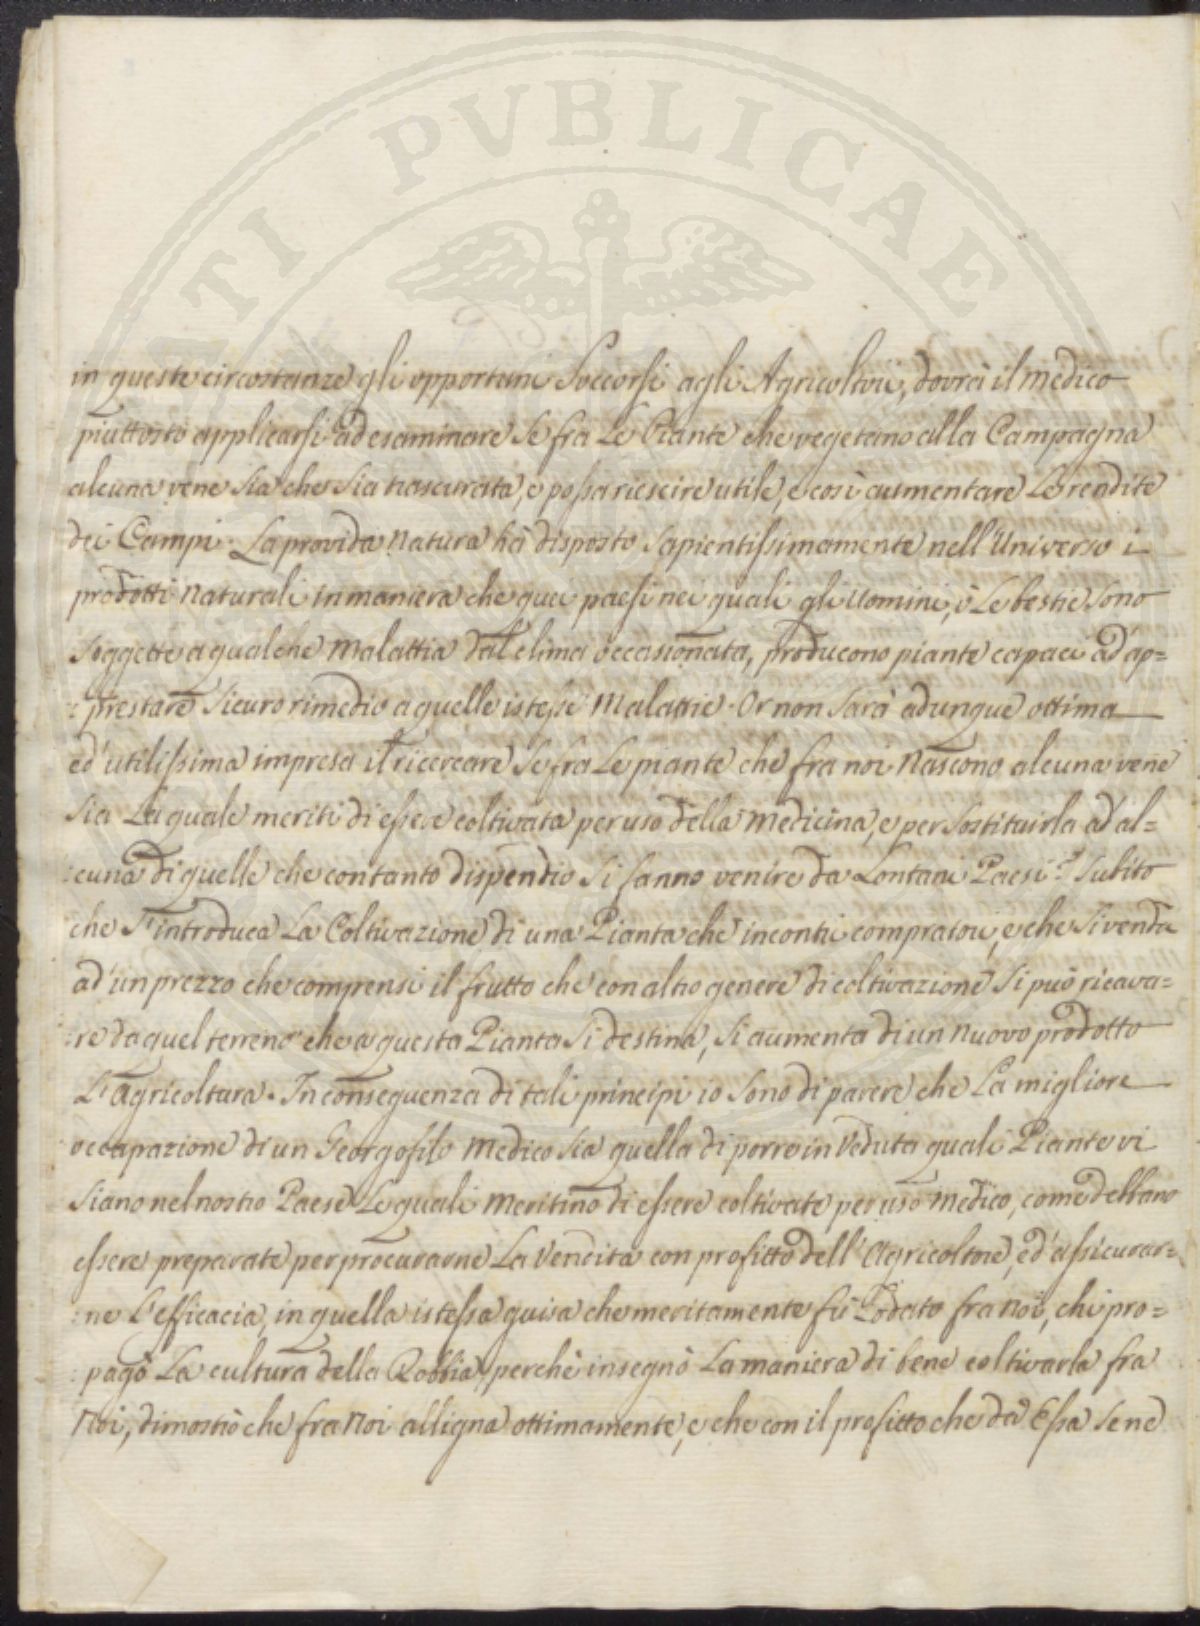 PVBLICAE
in queste circostanze gli opportuni Soccorsi agli Agricoltori, dovrà il medico
piuttosto applicarsi ad esaminare se fra Le Piante che vegetano alla Campagna
alcuna vene sia che sia trascurata, e possa riescire utile, e così aumentare Le rendite
dei Campi. La provida natura hà disposto sapientissimamente nell'Universo i
prodotti naturali in maniera che quei paesi nei quali gli Uomini, ò Le bestie sono
soggette a qualche malattia dal clima occasionata, producono piante capaci ad ap=
:prestare sicuro rimedio a quelle istesse malattie. Or non sarà adunque ottima
ed utilissima impresa il ricercare se fra Le piante che fra noi nascono alcuna vene
sia La quale meriti di essere coltivata per uso della medicina, e per sostituirla ad al=
:cuna di quelle che con tanto dispendio si fanno venire da Lontani Paesi? Subito
che s'introduca La Coltivazione di una Pianta che incontri compratori, e che si venda
ad un prezzo che compensi il frutto che con altro genere di coltivazione si può ricava=
:re da quel terreno che a questa Pianta si destina, si aumenta di un nuovo prodotto
L'agricoltura. In conseguenza di tali principi io sono di parere che La migliore
occupazione di un Georgofilo medico sia quella di porre in Veduta quali Piante vi
siano nel nostro Paese Le quali meritino di essere coltivate per uso medico, come debbano
essere preparate per procurarne La Vendita con profitto dell'Agricoltore, ed assicurar=
:ne L'efficacia, in quella istessa guisa che meritamente fù Lodato fra noi, chi pro=
:pagò La cultura della Robbia, perchè insegnò La maniera di bene coltivarla fra
noi, dimostrò che fra noi alligna ottimamente, e che con il profitto che da Essa se ne